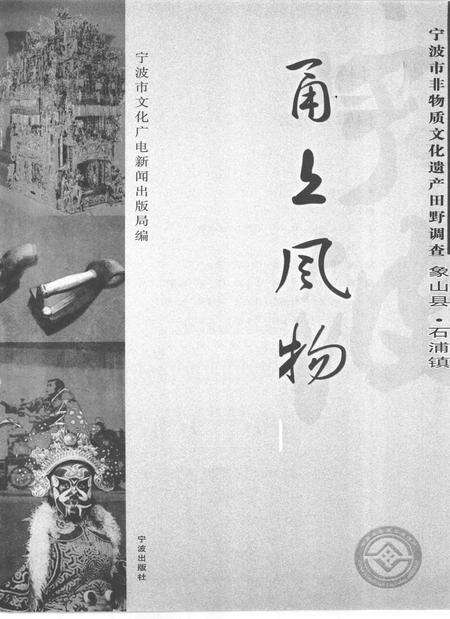 宁波市非物质文化遗产田野调查 象山县·石浦镇
甬上风物
宁波市文化广电新闻出版局编
宁波出版社